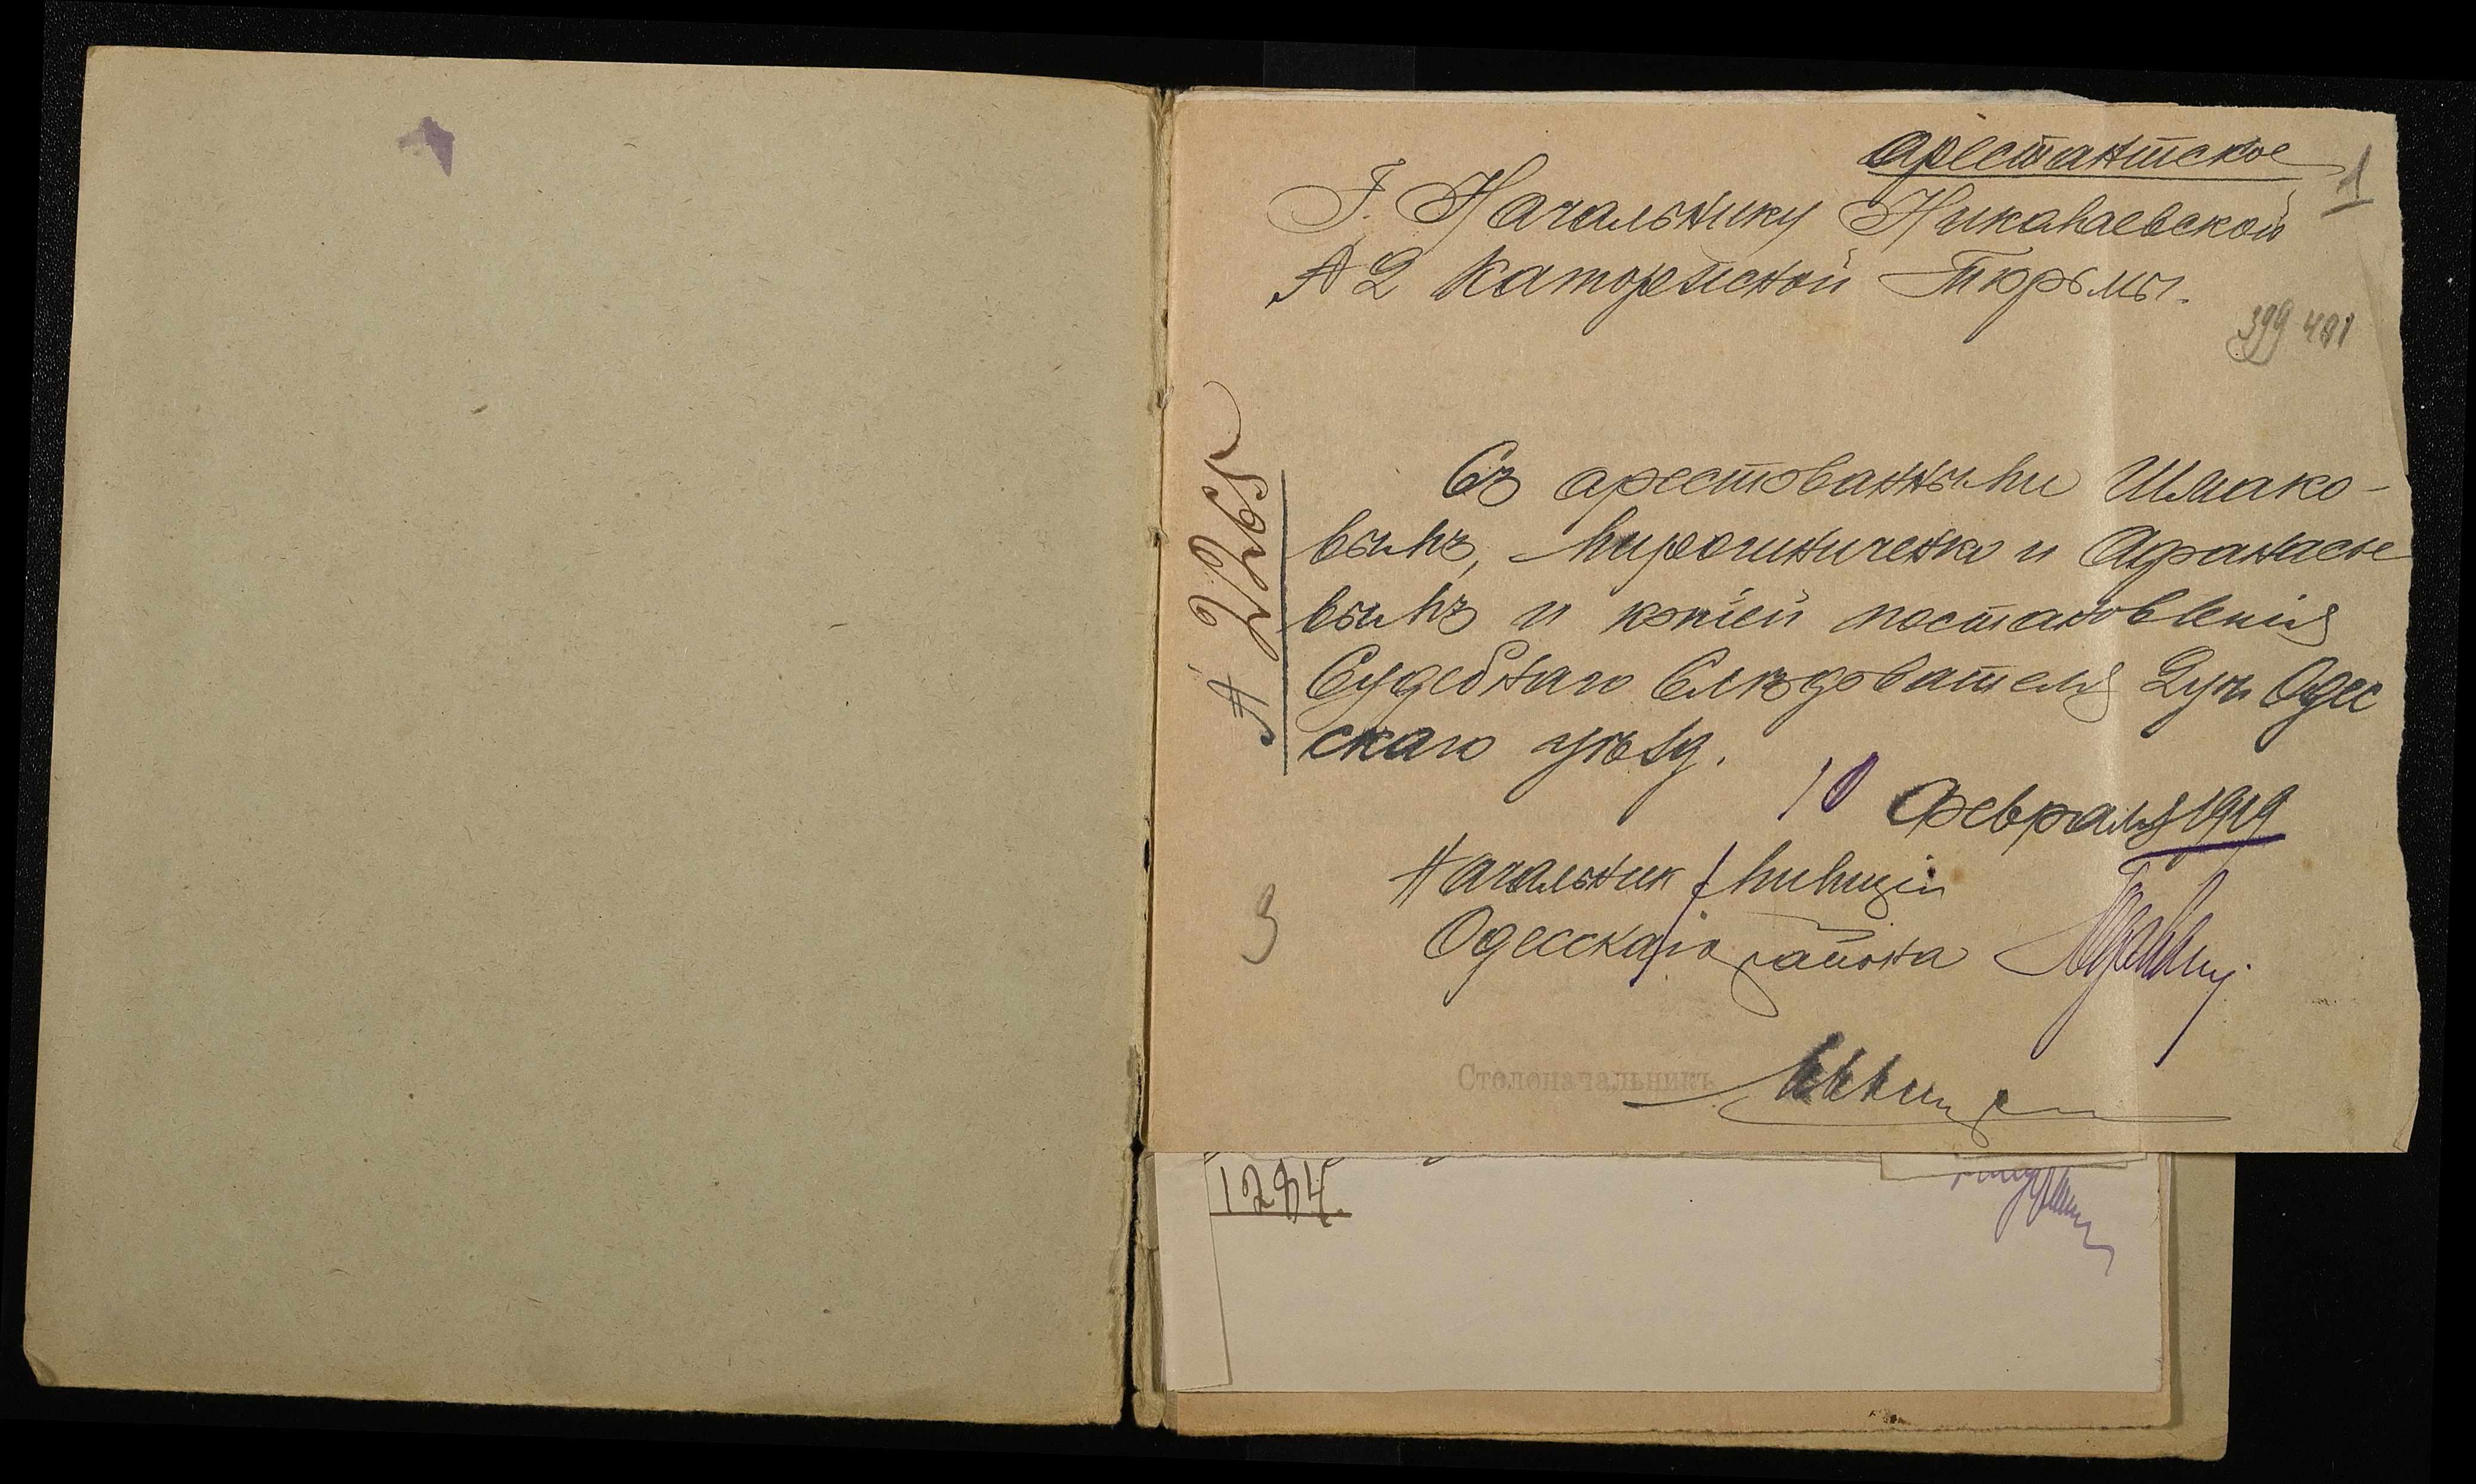 арестантское
1
Г. Начальнику Николаевской
№ 2 Каторжной Тюрьмы.
399 401
№ 2265
Съ арестованными Шмако-
вымъ, Мирошниченко и Афанасье
вымъ и копіей постановленія
Судебнаго Слѣдователя 2 уч. Одес
скаго уѣзд.
10 Февраля 1919
Начальник Милиціи
Одесскаго района
3
Столоначальникъ
1284.